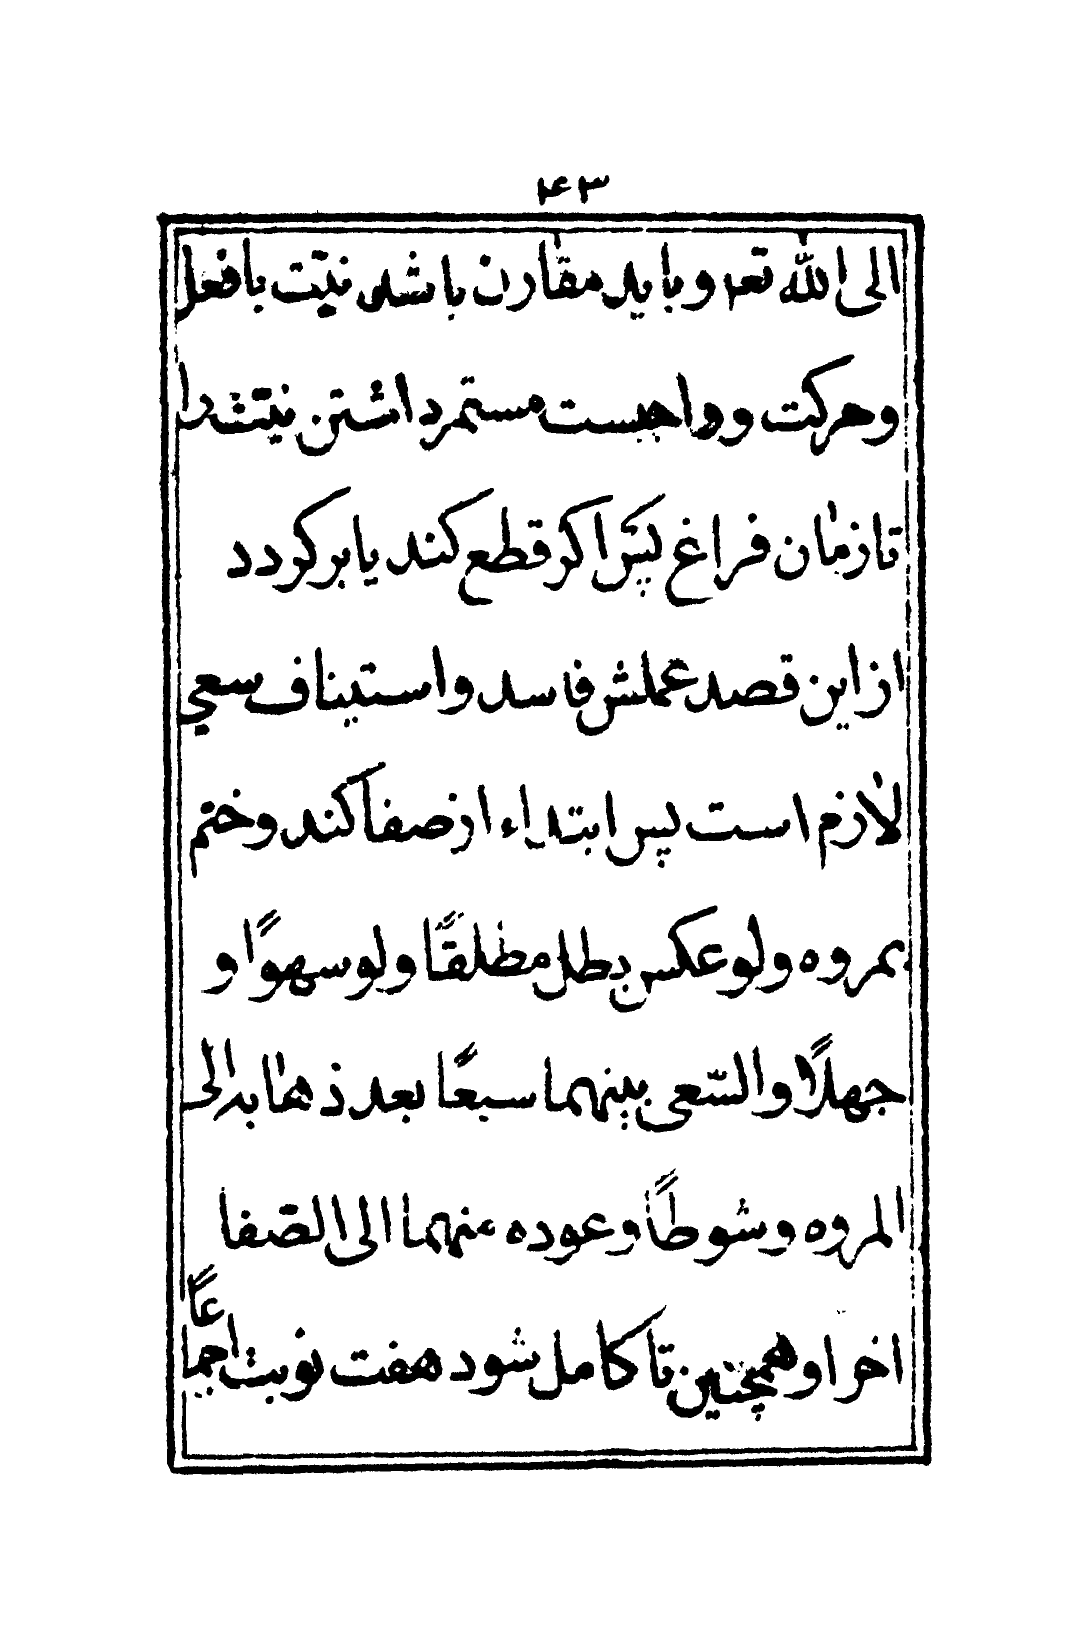 ۴۳
الی الله تعہ و باید مقارن باشد نیّت بافعل
وحرکت و واجبست مستمر داشتن نیّتشرا
تا زمان فراغ پس اکر قطع کند یا برکردد
از این قصد عملش فاسد و استیناف سعی
لازم است پس ابتداء از صفا کند و ختم
بمروه و لو عکس بطل مطلقًا ولو سهوًا و
جهلًا و السّعی بینهما سبعًا بعد ذهابه الی
المروه و شوطًا و عوده منهما الی الصّفا
اخرا و همچنین تا کامل شود هفت نوبت اجماعًا